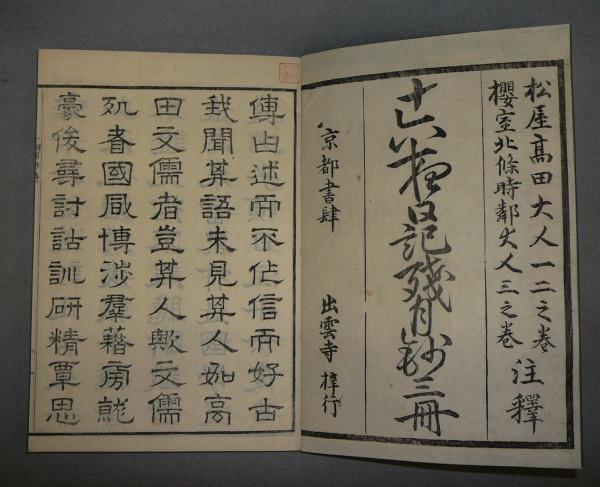 松屋高田大人一二之巻
櫻室北條時鄰大人三之巻
注釋
十六夜日記殘月鈔三冊
京都書肆 出雲寺梓行
傳曰述而不作信而好古
我聞其語未見其人如高
田文儒者豈其人歟文儒
爲國風博涉羣籍房
豪俊尋討詁訓研精覃思